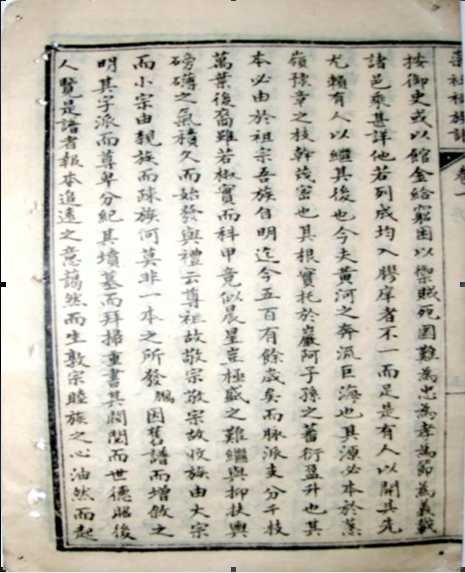 按御史或以館金給窮困以禦賊死國難為忠為孝為節為義載
諸邑乘甚詳他若列成均入膠庠者不一而足是有人以開其先
尤賴有人以繼其後也今夫黃河之奔流巨海也其源必本於崑
嶺豫章之枝幹茂密也其根實托於巖阿子孫之蕃衍盈升也其
本必由於祖宗吾族自明迄今五百有餘歲矣而脉派支分千枝
萬葉後裔雖若椒實而科甲竟似晨星豈極盛之難繼與抑扶輿
磅礴之氣積久而始發與禮云尊祖故敬宗敬宗故收族由大宗
而小宗由親族而疎族何莫非一本之所發鵬因舊譜而增敘之
明其字派而尊卑分紀其墳墓而拜掃重書其閥閱而世德昭後
人覽是譜者報本追遠之意藹然而生敦宗睦族之心油然而起